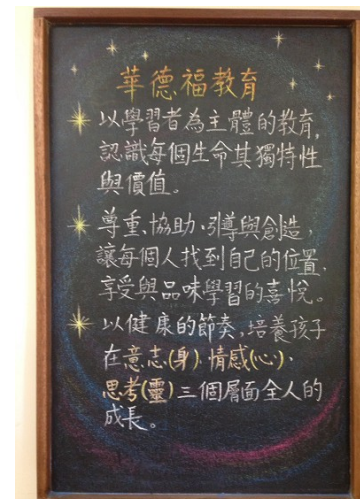 華德福教育
以學習者為主體的教育,
認識每個生命其獨特性
與價值。
尊重、協助、引導與創造,
讓每個人找到自己的位置,
享受與品味學習的喜悅。
以健康的節奏,培養孩子
在意志(身)、情感(心)、
思考(靈)三個層面全人的
成長。